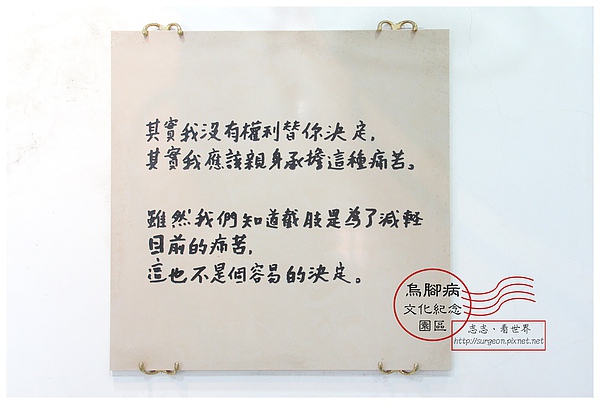 其實我沒有權利替你決定,
其實我應該親身承擔這種痛苦。
雖然我們知道截肢是為了減輕
目前的痛苦,
這也不是個容易的決定。
烏腳病
文化紀念
園區
志志·看世界
http://surgeon.pixnet.net